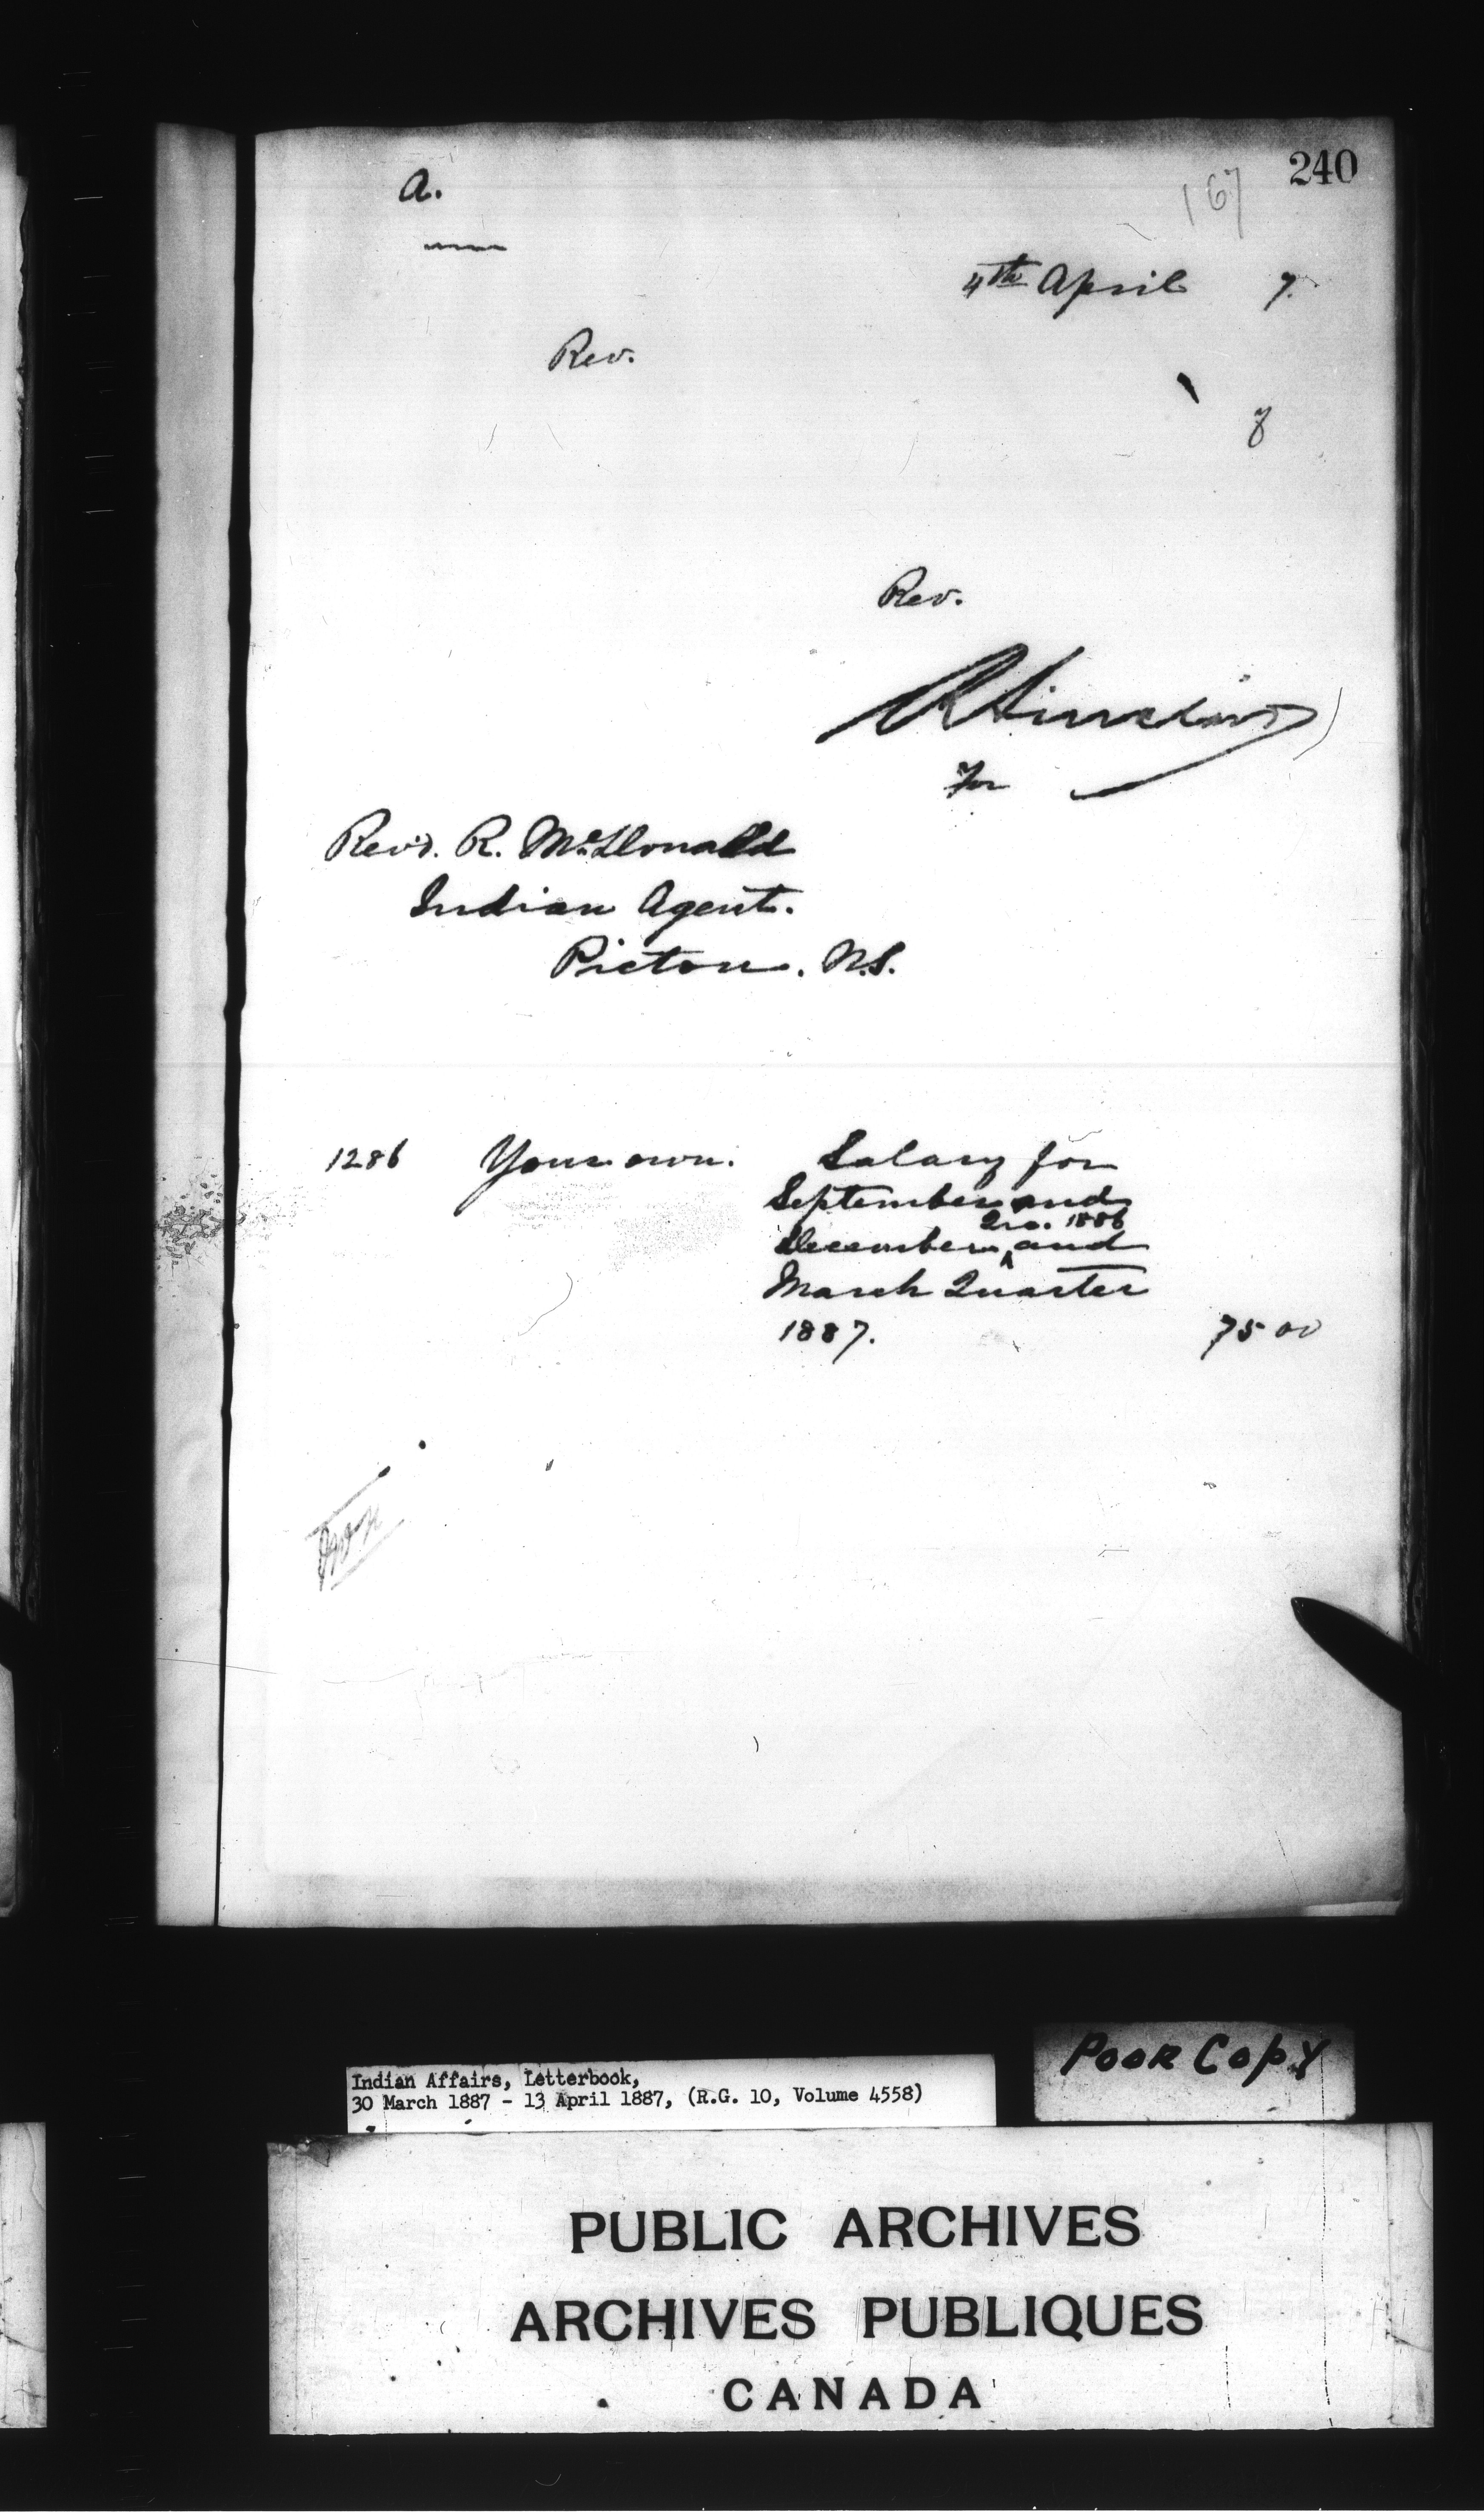 240
167
a.
4th April 7.
Rev.
8
Rev.
R Sinclair
For
Rev'd. R. McDonald
Indian Agent.
Pictou. N.S.
1286 Your own. Salary for
September and
Qrs. 1886
December ^ and
March Quarter
1887. 75 00
Indian Affairs, Letterbook,
30 March 1887 - 13 April 1887, (R.G. 10, Volume 4558)
Poor Copy
PUBLIC ARCHIVES
ARCHIVES PUBLIQUES
CANADA